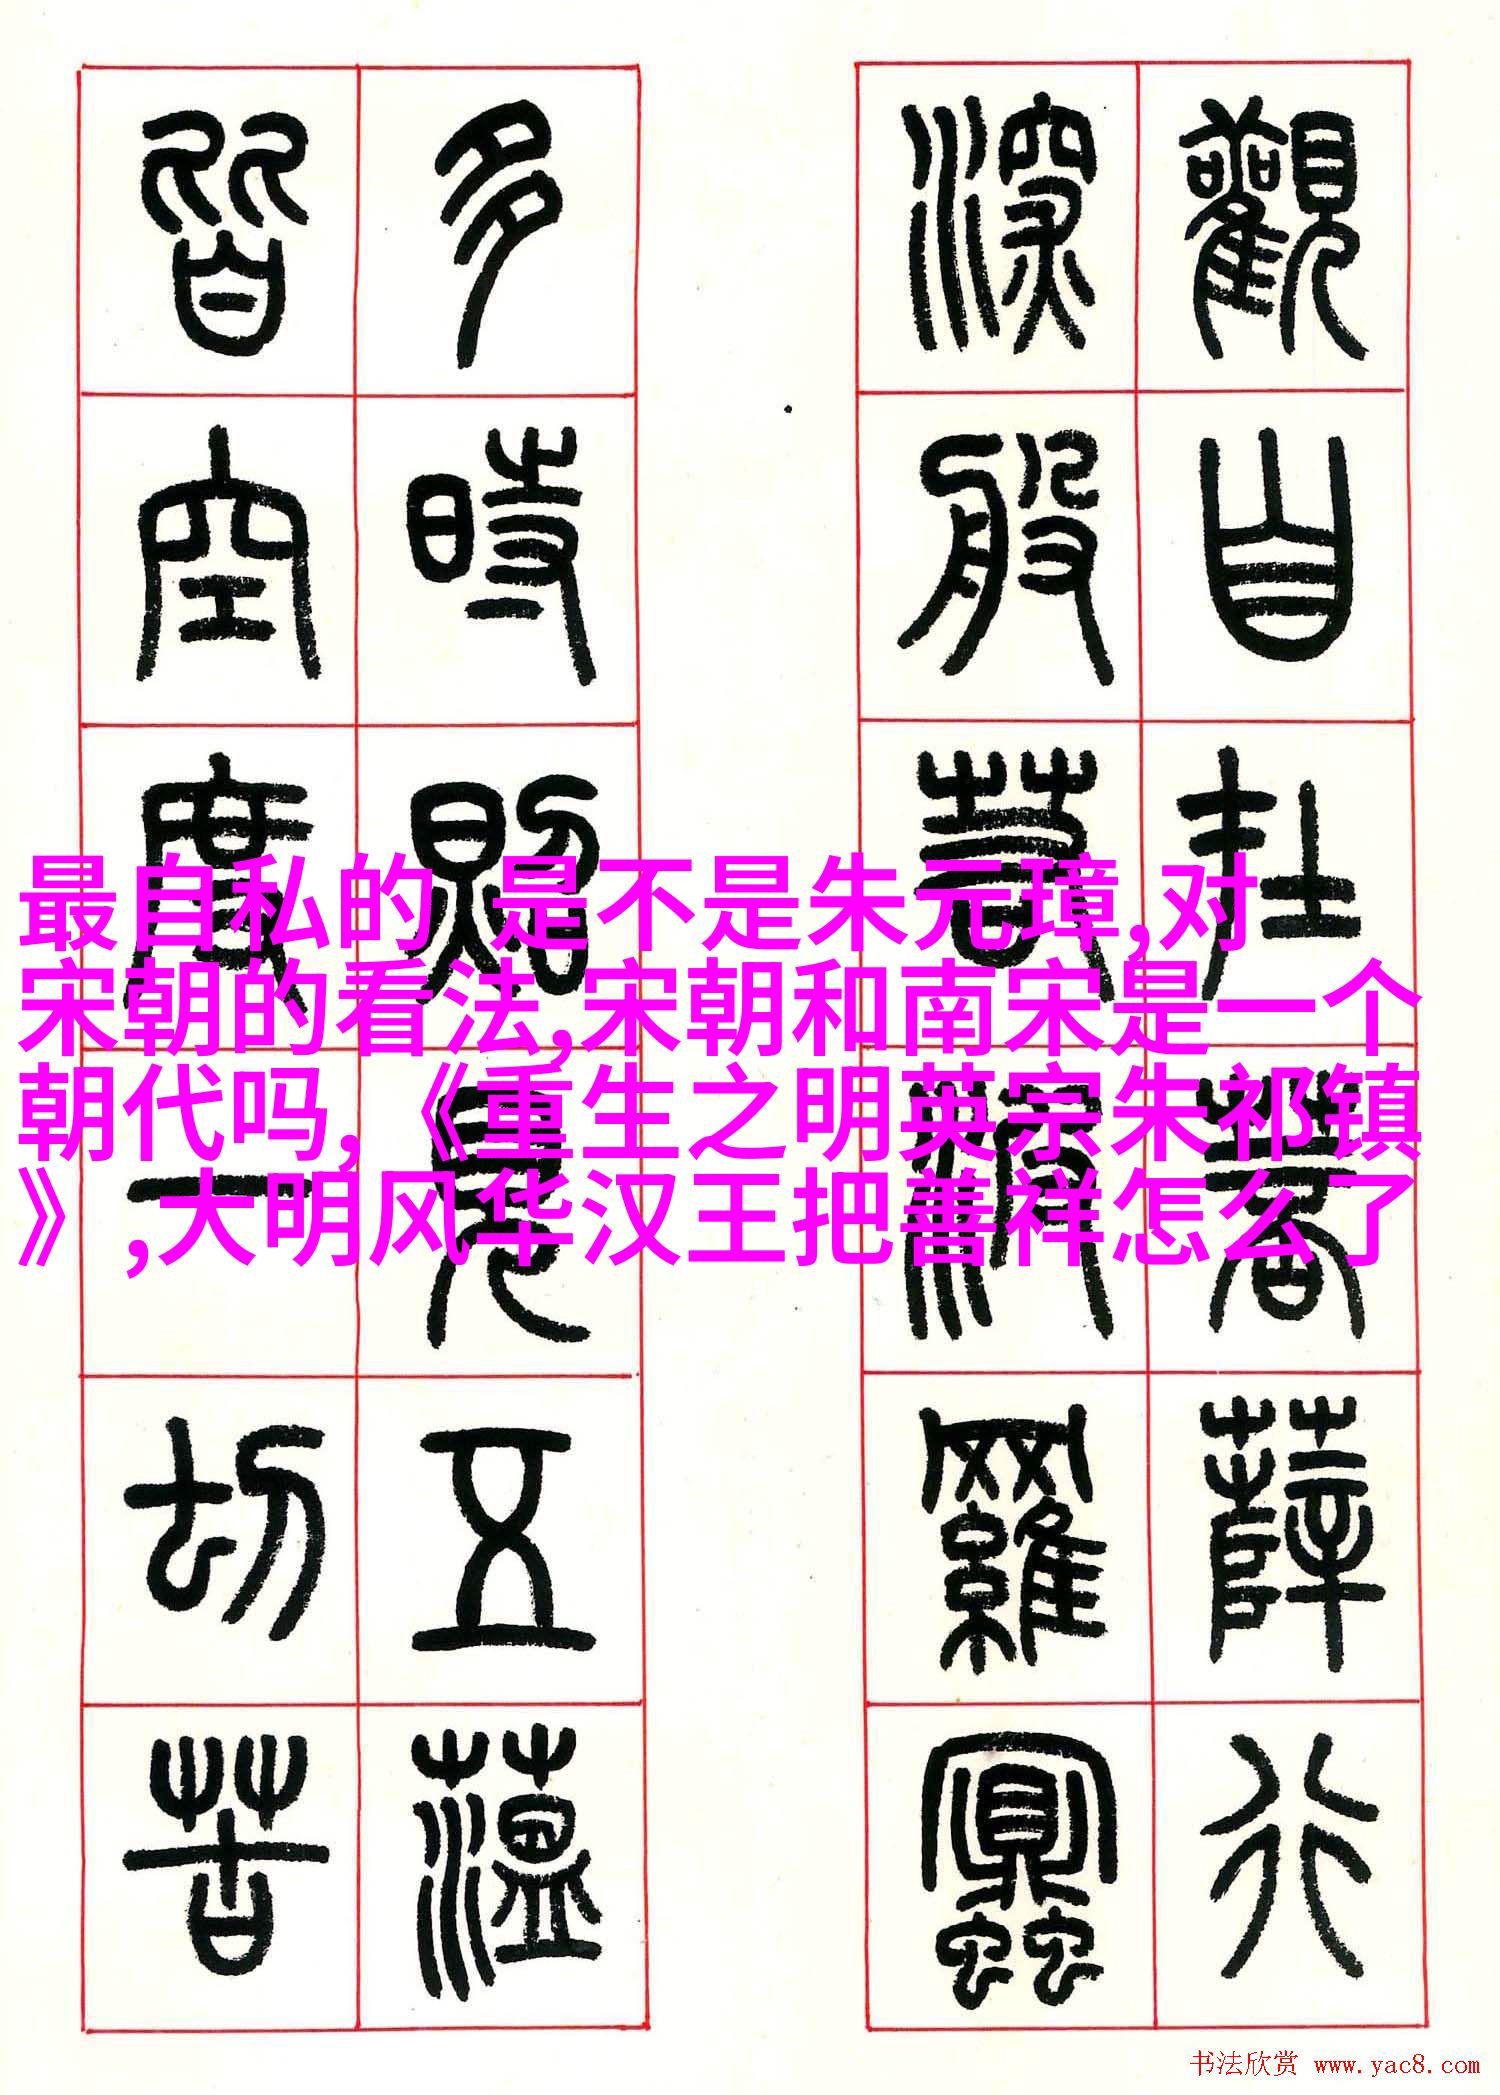 觀自在菩薩行
深般若波羅蜜
多時照見五蘊
皆空度一切苦
最自私的 是不是朱元璋,对
宋朝的看法,宋朝和南宋是一个
朝代吗,《重生之明英宗朱祁镇
》,大明风华汉王把善祥怎么了
书法欣赏 www.yac8.com